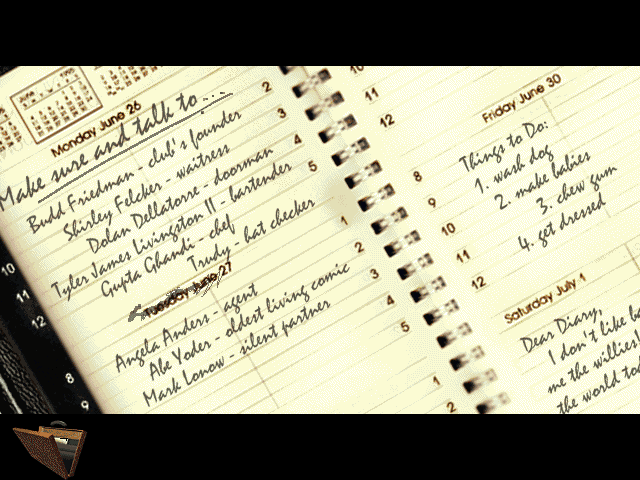 1995
Monday June 26
Make sure and talk to...
Budd Friedman - club's founder
Shirley Felcker - waitress
Dolan Dellatorre - doorman
Tyler James Livingston II - bartender
Gupta Ghandi - chef
Trudy - hat checker
Tuesday June 27
Angela Anders - agent
Abe Yoder - oldest living comic
Mark Lonow - silent partner
2
3
4
5
10
11
12
1
2
3
4
5
8
9
1
2
10
11
12
Friday June 30
Things to Do:
1. wash dog
2. make babies
3. chew gum
4. get dressed
8
9
10
11
12
Saturday July 1
Dear Diary,
I don't like
me the willies!
the world